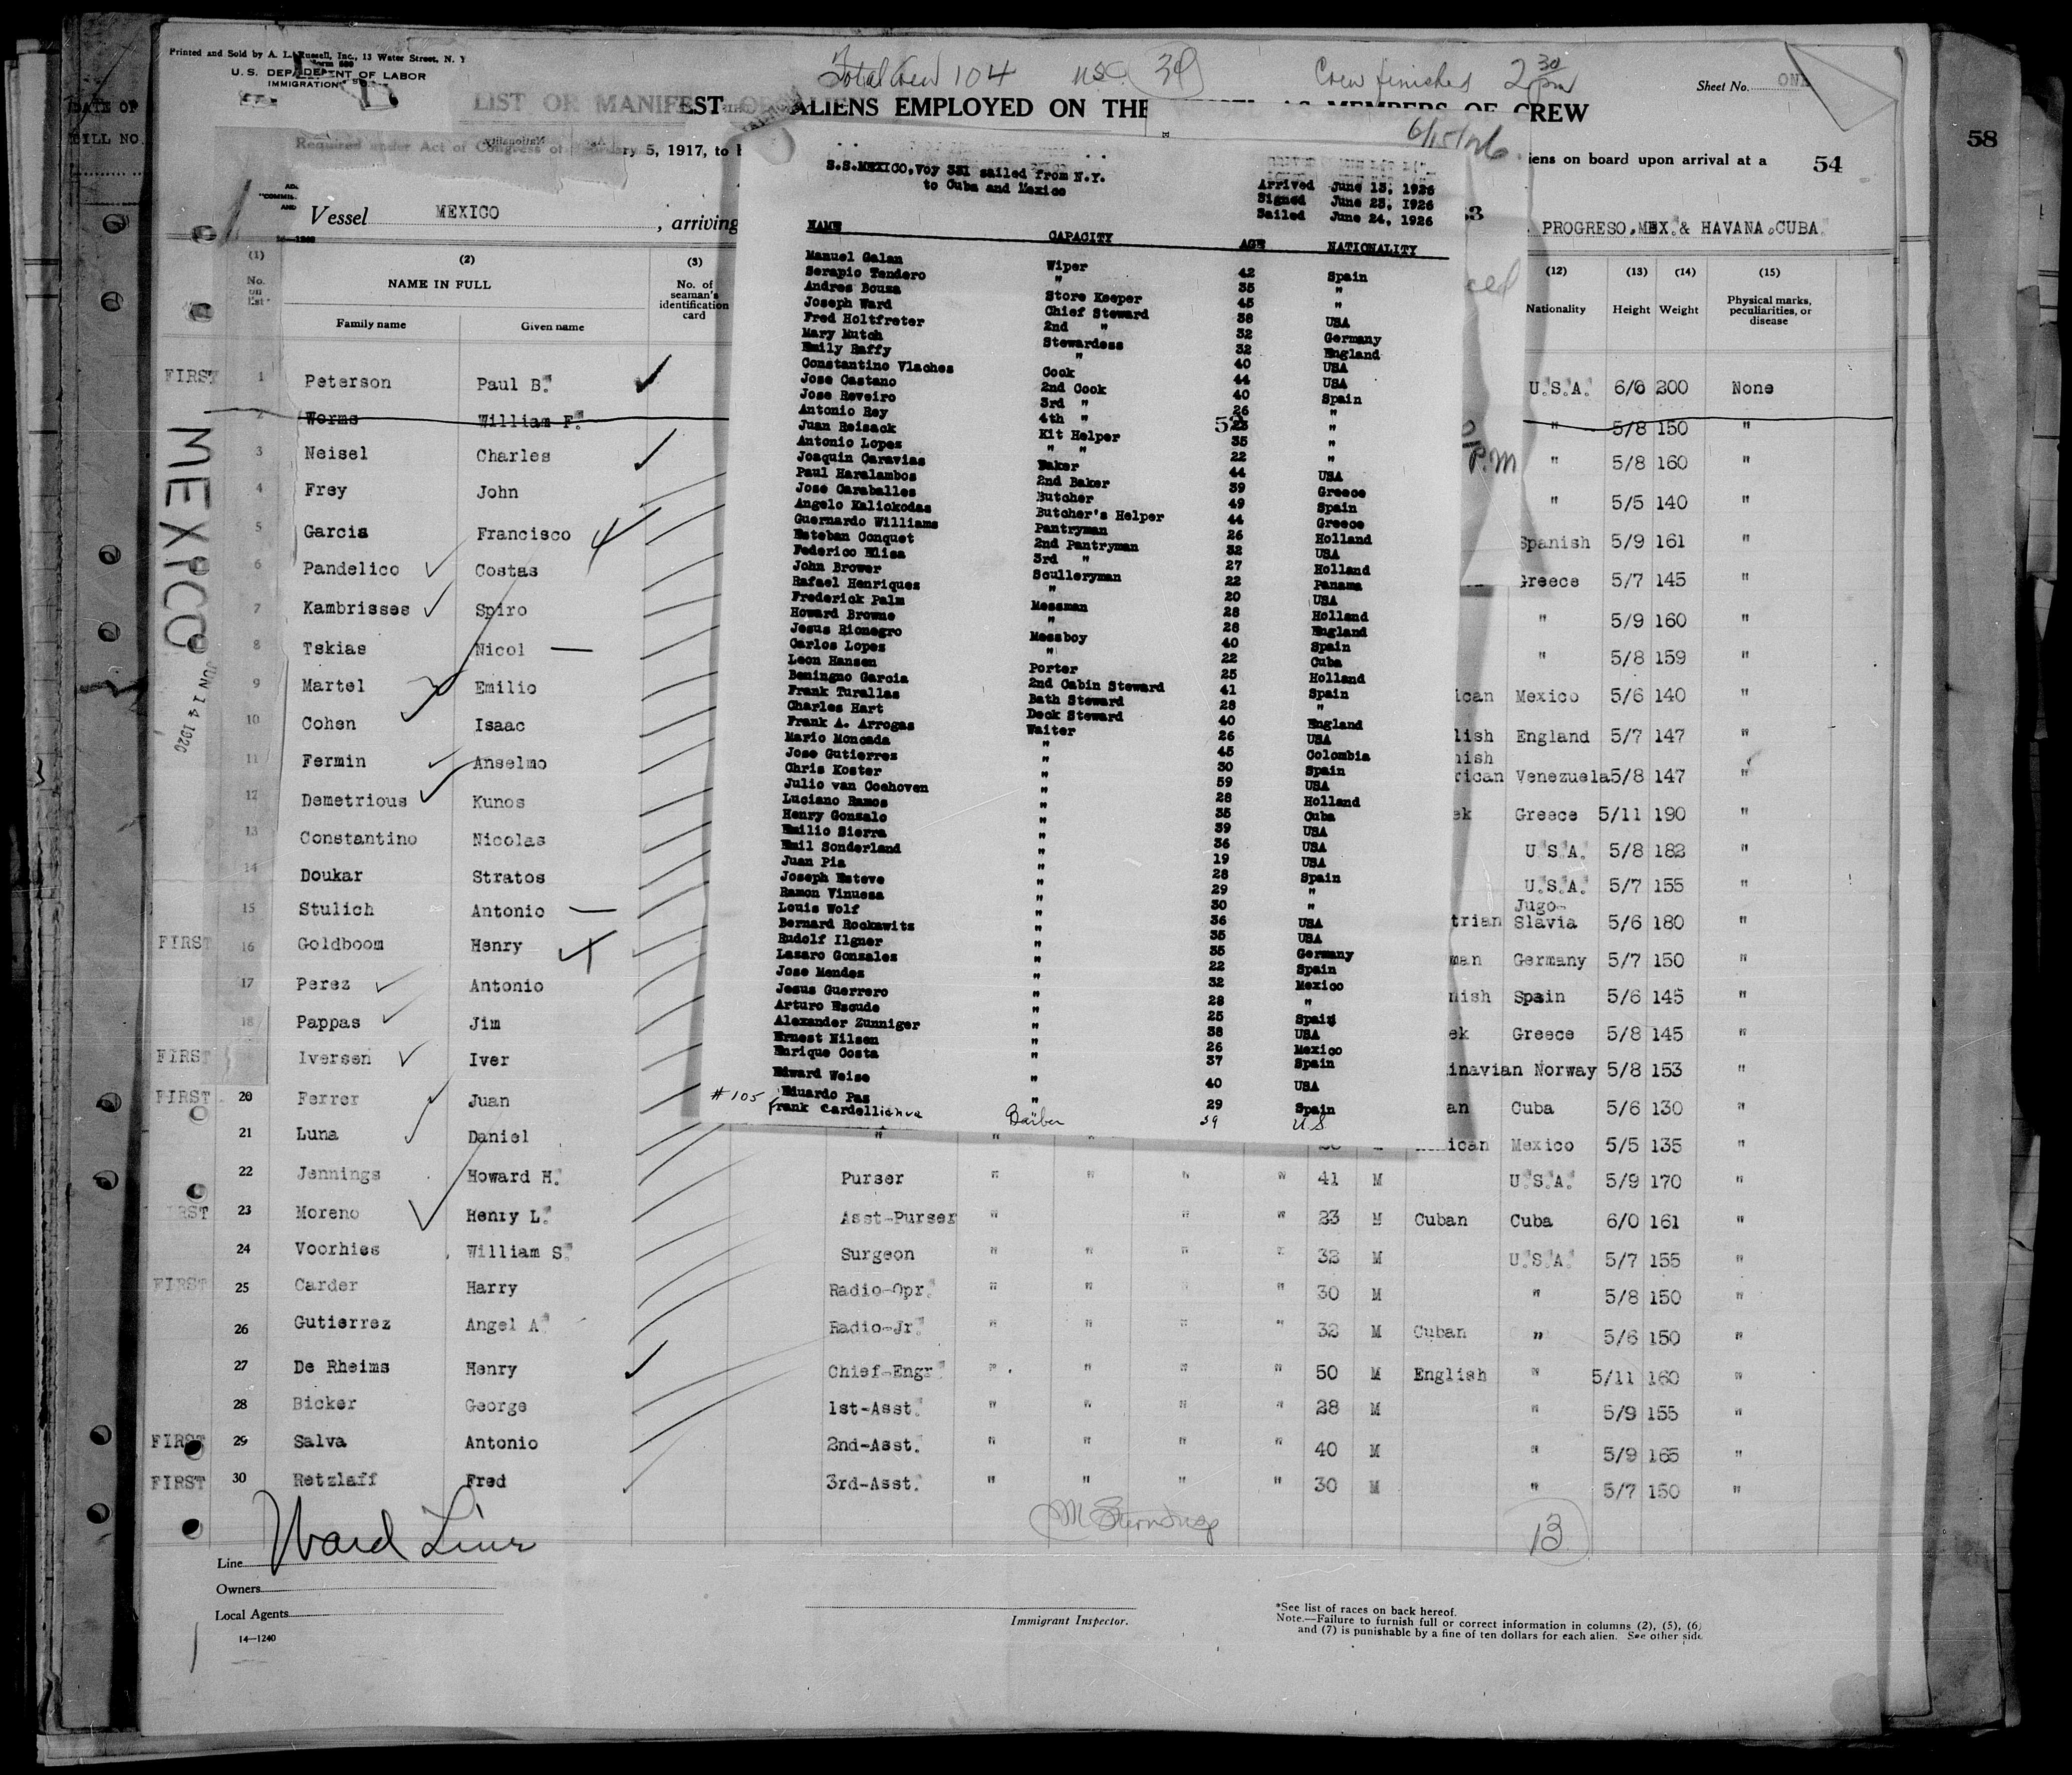 Printed and Sold by A. L. Russell, Inc., 13 Water Street, N. Y
U.S. DEPARTMENT OF LABOR
IMMIGRATION
Total Crew 104 USC 39 Crew finishes 2 30 pm
Sheet No. ONE
LIST OR MANIFEST OF ALIENS EMPLOYED ON THE VESSEL AS MEMBERS OF CREW
DATE OF
BILL NO.
58
Required under Act of Congress of February 5, 1917, to b
iens on board upon arrival at a
54
Vessel MEXICO, arriving
PROGRESO, MEX. & HAVANA. CUBA.
6/15/26
S.S. MEXICO, Voy 331 sailed from N.Y.
to Cuba and Mexico
Arrived June 13, 1926
Signed June 23, 1926
Sailed June 24, 1926
NAME CAPACITY AGE NATIONALITY
Manuel Galan Wiper 42 Spain
Serapio Tendero " 35 "
Andres Bouza Store Keeper 45 "
Joseph Ward Chief Steward 38 USA
Fred Holtfreter 2nd " 32 Germany
Mary Mutch Stewardess 32 England
Emily Raffy " 40 USA
Constantino Vlaches Cook 44 USA
Jose Castano 2nd Cook 40 Spain
Jose Reveiro 3rd " 26 "
Antonio Rey 4th " "
Juan Reisack Kit Helper 35 "
Antonio Lopez " " 22 "
Joaquin Caravias Baker 44 USA
Paul Haralambos 2nd Baker 39 Greece
Jose Caraballes Butcher 49 Spain
Angelo Kaliokodas Butcher's Helper 44 Greece
Guernardo Williams Pantryman 26 Holland
Esteban Conquet 2nd Pantryman 32 USA
Federico Elisa 3rd " 27 Holland
John Brower Sculleryman 22 Panama
Rafael Henriquez " 20 USA
Frederick Palm Messman 28 Holland
Howard Browne " 28 England
Jesus Rionegro Messboy 40 Spain
Carlos Lopez " 22 Cuba
Leon Hansen Porter 25 Holland
Beningno Garcia 2nd Cabin Steward 41 Spain
Frank Turallas Bath Steward 28 "
Charles Hart Deck Steward 40 England
Frank A. Arrogas Waiter 26 USA
Mario Moncada " 45 Colombia
Jose Gutierrez " 30 Spain
Chris Koster " 59 USA
Julio van Coehoven " 28 Holland
Luciano Ramos " 35 Cuba
Henry Gonzalo " 39 USA
Emilio Sierra " 36 USA
Emil Sonderland " 19 USA
Juan Pia " 28 Spain
Joseph Esteve " 29 "
Ramon Vinuesa " 30 "
Louis Wolf " 36 USA
Bernard Rockowitz " 35 USA
Rudolf Ilgner " 35 Germany
Lazaro Gonzales " 22 Spain
Jose Mendez " 32 Mexico
Jesus Guerrero " 28 "
Arturo Escude " 25 Spain
Alexander Zunniger " 38 USA
Ernest Nilsen " 26 Mexico
Enrique Costa " 37 Spain
Edward Weise " 40 USA
Eduardo Pas " 29 Spain
#105 Frank Barber 39 U.S.
(1) (2) (3) (12) (13) (14) (15)
No. on list
NAME IN FULL
Family name Given name
No. of seaman's identification card
Nationality Height Weight
Physical marks, peculiarities, or disease
MEXICO
FIRST 1 Peterson Paul B. U.S.A. 6/6 200 None
2 Worms William F. " 5/8 150 "
3 Neisel Charles " 5/8 160 "
P.M
4 Frey John " 5/5 140 "
5 Garcia Francisco Spanish 5/9 161 "
6 Pandelico Costas Greece 5/7 145 "
7 Kambrisses Spiro " 5/9 160 "
8 Tskias Nicol " 5/8 159 "
9 Martel Emilio ican Mexico 5/6 140 "
10 Cohen Isaac lish England 5/7 147 "
11 Fermin Anselmo nish rican Venezuela 5/8 147 "
12 Demetrious Kunos ek Greece 5/11 190 "
13 Constantino Nicolas U.S.A. 5/8 182 "
14 Doukar Stratos U.S.A. 5/7 155 "
15 Stulich Antonio trian Jugo-Slavia 5/6 180 "
FIRST 16 Goldboom Henry man Germany 5/7 150 "
17 Perez Antonio nish Spain 5/6 145 "
18 Pappas Jim ek Greece 5/8 145 "
FIRST Iversen Iver inavian Norway 5/8 153 "
FIRST 20 Ferrer Juan an Cuba 5/6 130 "
21 Luna Daniel " " " ican Mexico 5/5 135 "
22 Jennings Howard H. Purser " " " " 41 M U.S.A. 5/9 170 "
FIRST 23 Moreno Henry L. Asst-Purser " " " 23 M Cuban Cuba 6/0 161 "
24 Voorhies William S. Surgeon " " " " 32 M U.S.A. 5/7 155 "
FIRST 25 Carder Harry Radio-Opr. " " " 30 M " 5/8 150 "
26 Gutierrez Angel A. Radio-Jr. " " " " 32 M Cuban " 5/6 150 "
27 De Rheims Henry Chief-Engr. " " " " 50 M English " 5/11 160 "
28 Bicker George 1st-Asst. " " " " 28 M " 5/9 155 "
FIRST 29 Salva Antonio 2nd-Asst. " " " " 40 M " 5/9 165 "
FIRST 30 Retzlaff Fred 3rd-Asst. " " " " 30 M " 5/7 150 "
13
Line Ward Line
Owners
Local Agents
14—1240
Immigrant Inspector.
*See list of races on back hereof.
Note.—Failure to furnish full or correct information in columns (2), (5), (6)
and (7) is punishable by a fine of ten dollars for each alien. See other side